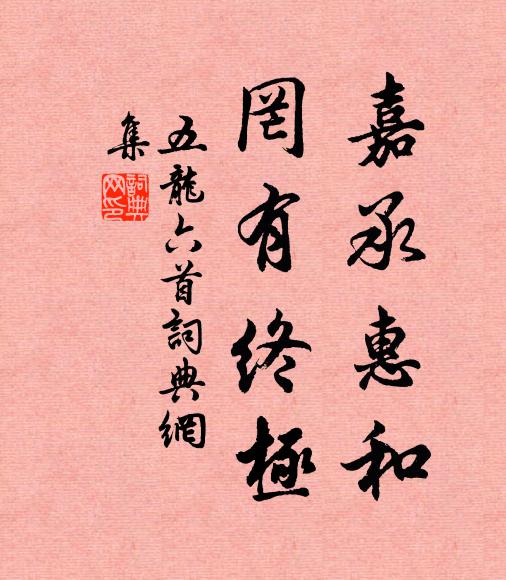 嘉承惠和
罔有終極
五龍六首詞典網
集
詞典
網印